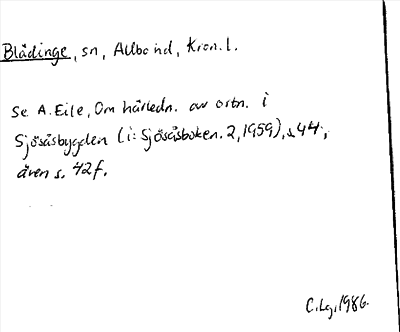 Blädinge, sn, Allbo hd, Kron. l.
Se A. Eile, Om härledn. av ortn. i
Sjösåsbygden (i: Sjösåsboken. 2, 1959), s. 44;
även s. 42f.
C. Lg, 1986.